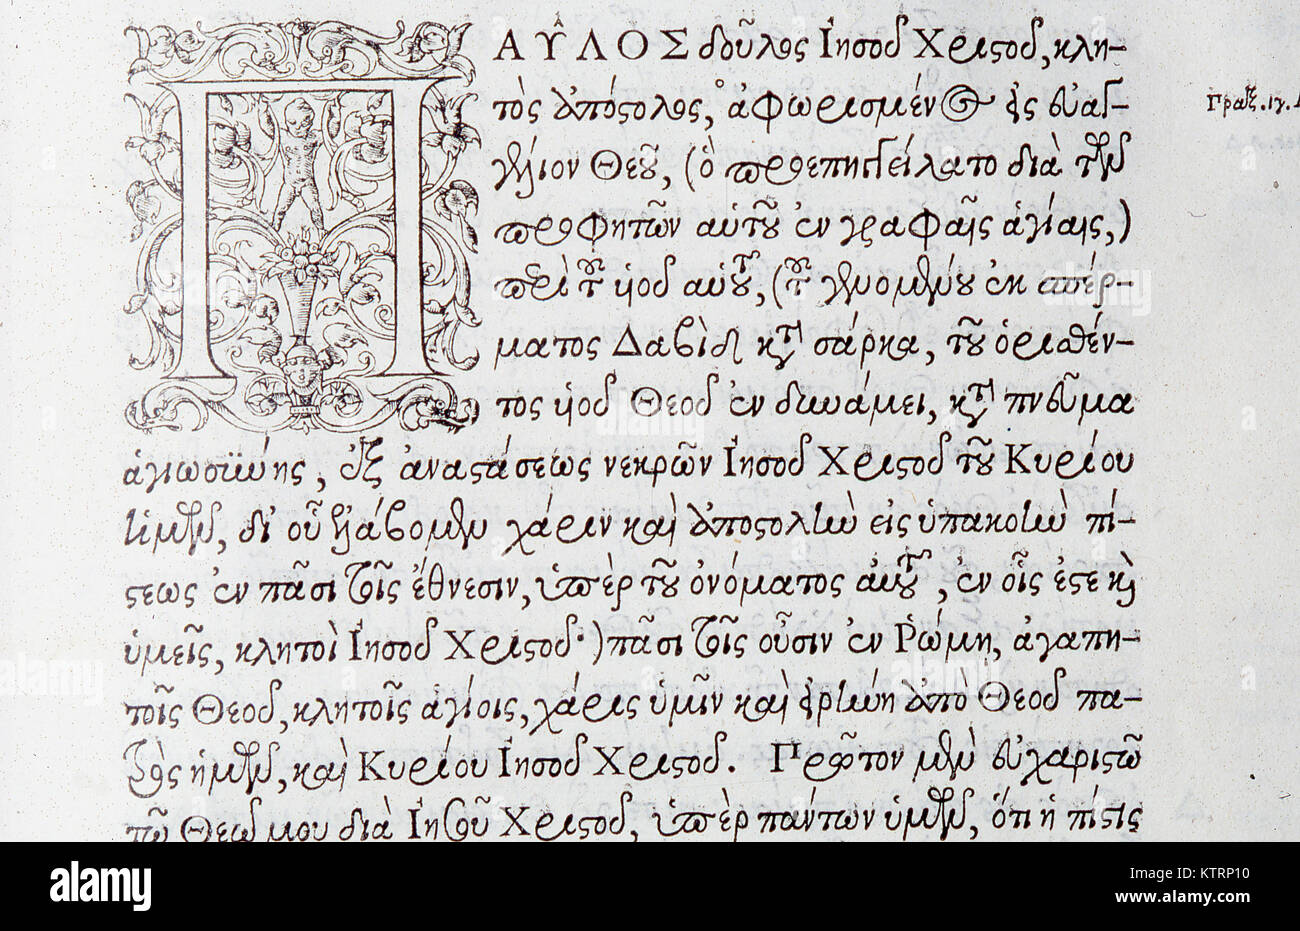 ΠΑΥ͂ΛΟΣ δοῦλος Ἰησοῦ Χριστοῦ, κλη-
τὸς ἀπόστολος, ἀφωρισμένος εἰς εὐαγ-
γέλιον Θεοῦ, (ὃ προεπηγγείλατο διὰ τῶν
προφητῶν αὐτοῦ ἐν γραφαῖς ἁγίαις,)
περὶ τοῦ υἱοῦ αὐτοῦ, (τοῦ γενομένου ἐκ σπέρ-
ματος Δαβὶδ κατὰ σάρκα, τοῦ ὁρισθέν-
τος υἱοῦ Θεοῦ ἐν δυνάμει, κατὰ πνεῦμα
ἁγιωσύνης, ἐξ ἀναστάσεως νεκρῶν Ἰησοῦ Χριστοῦ τοῦ Κυρίου
ἡμῶν, δι' οὗ ἐλάβομεν χάριν καὶ ἀποστολὴν εἰς ὑπακοὴν πί-
στεως ἐν πᾶσι τοῖς ἔθνεσιν, ὑπὲρ τοῦ ὀνόματος αὐτοῦ, ἐν οἷς ἐστε καὶ
ὑμεῖς, κλητοὶ Ἰησοῦ Χριστοῦ·) πᾶσι τοῖς οὖσιν ἐν Ῥώμῃ, ἀγαπη-
τοῖς Θεοῦ, κλητοῖς ἁγίοις, χάρις ὑμῖν καὶ εἰρήνη ἀπὸ Θεοῦ πα-
τρὸς ἡμῶν, καὶ Κυρίου Ἰησοῦ Χριστοῦ. Πρῶτον μὲν εὐχαριστῶ
τῷ Θεῷ μου διὰ Ἰησοῦ Χριστοῦ, ὑπὲρ πάντων ὑμῶν, ὅτι ἡ πίστις
Πραξ. ιγ.
alamy
alamy
Image ID: KTRP10
www.alamy.com